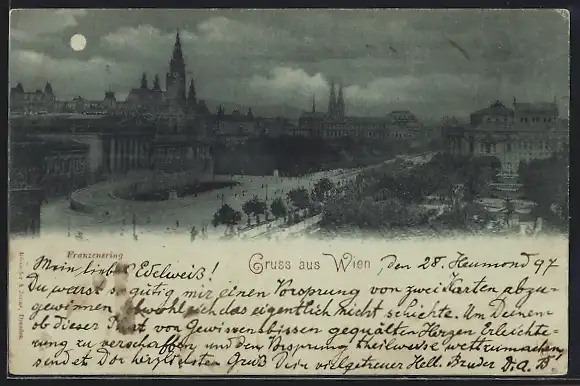 Franzensring
Gruss aus Wien, den 28. Heumond 97
Mein liebes Edelweiß!
Du warst so gütig mir einen Vorsprung von zwei Karten abzu-
gewinnen obwohl sich das eigentlich nicht schickte. Um Deinem
ob dieser Tat von Gewissensbissen gequälten Herzen Erleichte-
rung zu verschaffen und den Vorsprung theilweise wettzumachen,
sendet Dir herzlichsten Gruß Dein vielgetreuer Hell. Bruder
Dresden.